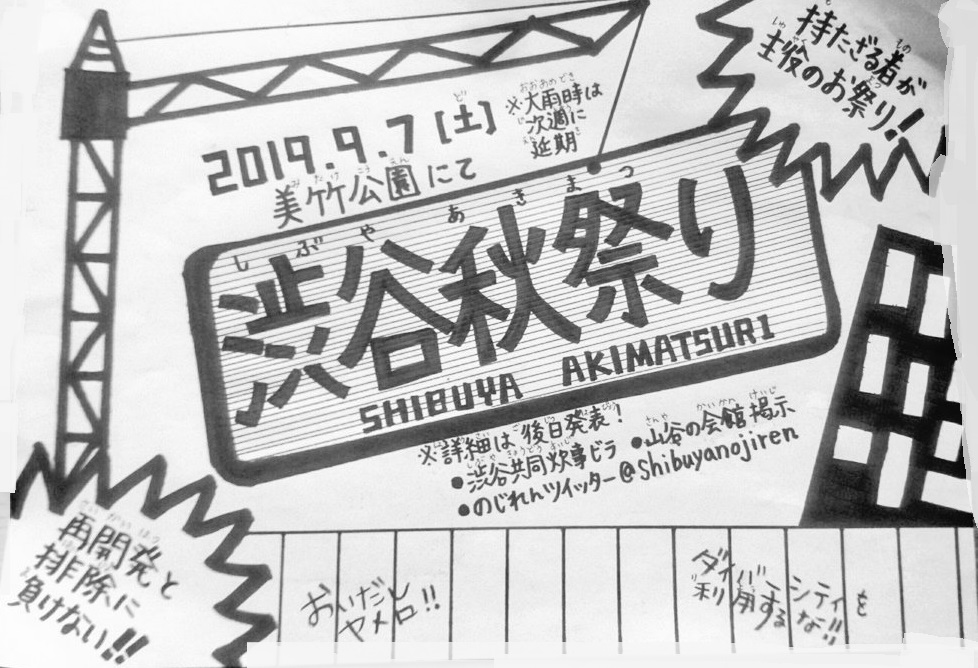 持たざる者が
主役のお祭り!
2019.9.7[土]
※大雨時は
次週に
延期
美竹公園にて
渋谷秋祭り
SHIBUYA AKIMATSURI
※詳細は後日発表!
•渋谷共同炊事ビラ •山谷の会館掲示
•のじれんツイッター@shibuyanojiren
再開発と
排除に
負けない!!
おいだし
ヤメロ!!
ダイバーシティを
利用するな!!